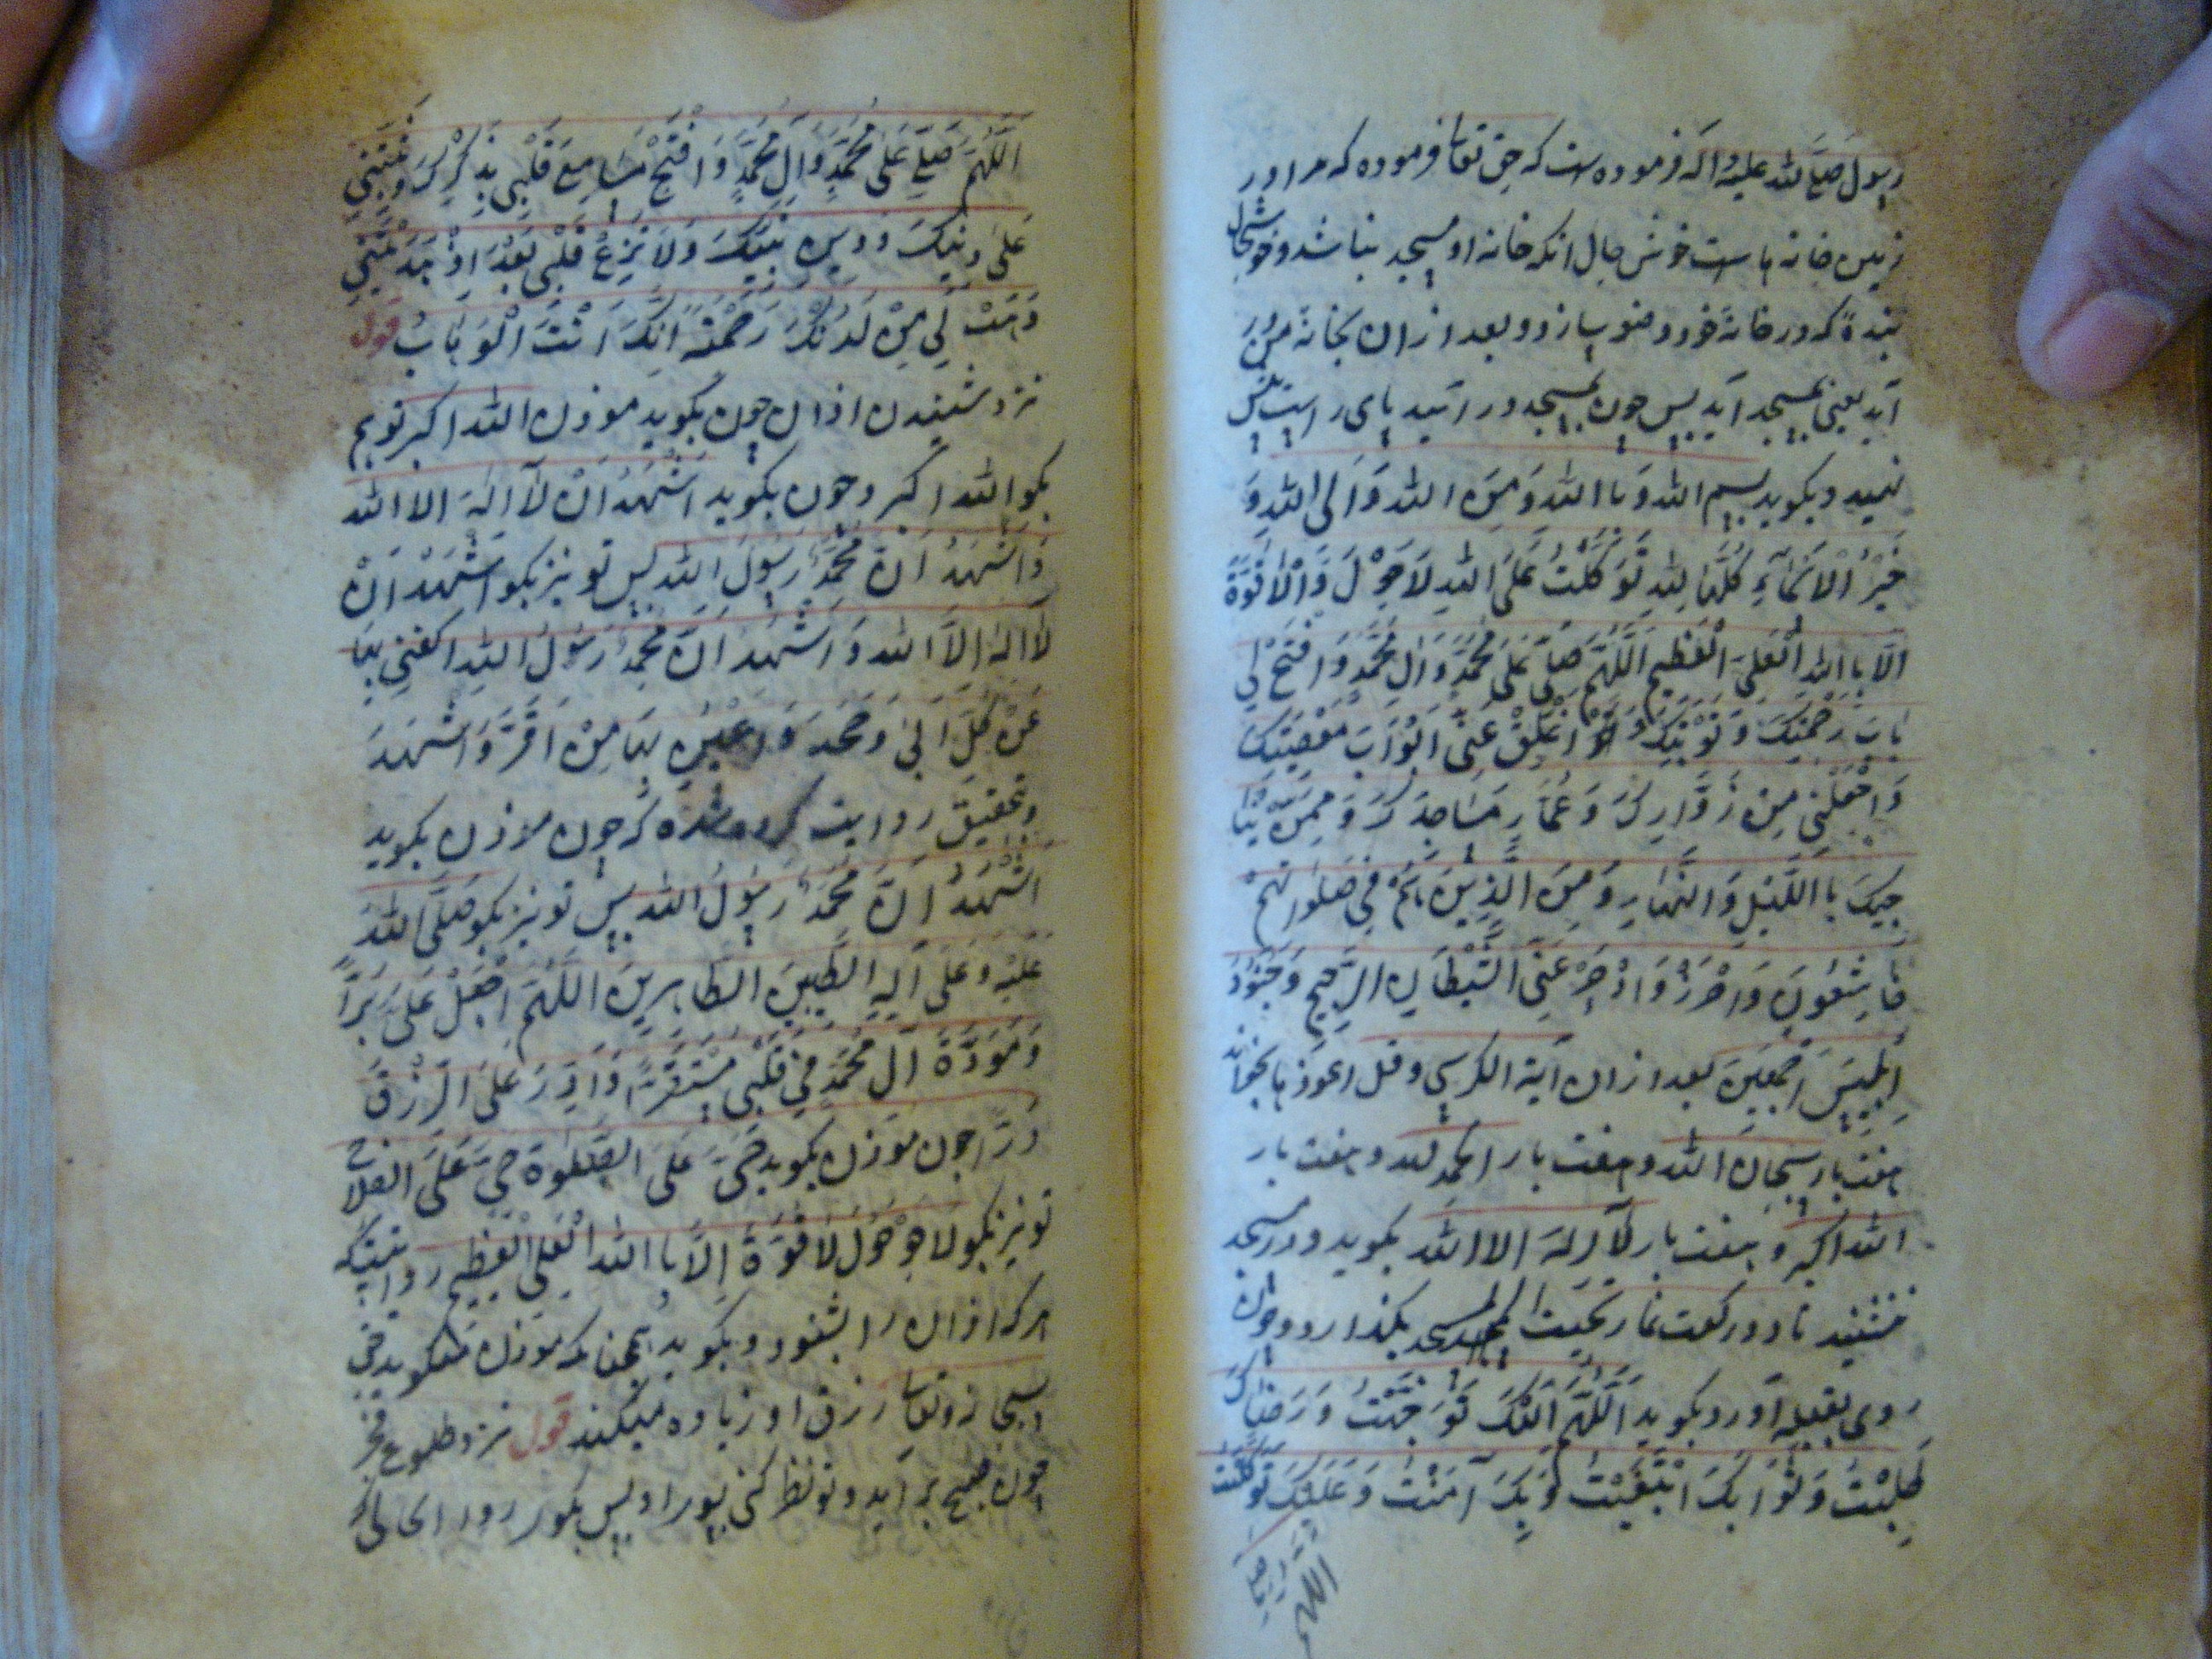 رسول صلی الله علیه و اله فرموده است که حق تعا فرموده که مرا در
زمین خانه ها ست خوش حال انکه خانه او مسجد بنا شد و خوشحال
بندهٔ که در خانهٔ خود وضو بسازد و بعد از ان بخانهٔ من
آید یعنی بمسجد آید پس چون بمسجد در آئید پای راست پیش
نهید و بکوید بسم الله وَ با الله وَ مِنَ الله وَ اَلی الله وَ
خَیْرُ الْاَسْمَآءِ کُلُّهَا لِلّهِ تَوَکَّلْتُ عَلَی اللهِ لَا حَوْلَ وَ الْاقُوَّةَ
اِلّا با اللهِ الْعَلِیِّ الْعَظیم اَللّهُمَّ صَلِّ عَلی مُحَمَّدٍ وَ الِ مُحَمَّدٍ وَ افْتَحْ لی
بَابَ رَحْمَتِکَ وَ تَوْبَتِکَ وَ اَغْلِقْ عَنّی اَبْوَابَ مَعْصِیَتِکَ
وَ اجْعَلْنی مِنْ زُوَّارِکَ وَ عُمَّارِ مَسَاجِدِکَ وَ مِمَّنْ یُنَا
جیکَ با اللَّیْلِ وَ النَّهَارِ وَ مِنَ الَّذِیْنَ هُمْ فی صَلوٰاتِهِمْ
خَاشِعُونَ وَ ادْحَرْ عَنِّی الشَّیْطَانِ الرَّجیمِ وَ جُنُودَ
اِبْلیسَ اَجْمَعینَ بعد از ان آیة الکرسی و قل اعوذ ها بخواند
هفت بار سبحان الله و هفت بار الحمد لله و هفت بار
الله اکبر و هفت بار لآ اله الا الله بکوید و در مسجد
ننشیند تا دو رکعت نماز تحیت المسجد بکذارد و چون
روی بقبله آورد بکوید اَللّهُمَّ اِلَیْکَ تَوَجَّهْتُ وَ رَضَاکَ
طَلَبْتُ وَ ثَوَابَکَ ابْتَغَیْتُ وَ بِکَ آمَنْتُ وَ عَلَیْکَ تَوَکَّلْتُ
اللهم
اَللّهُمَّ صَلِّ عَلی مُحَمَّدٍ وَ الِ مُحَمَّدٍ وَ افْتَحْ مَسَامِعَ قَلْبی بِذِکْرِکَ وَ ثَبِّتْنی
عَلی دینِکَ وَ دینِ نَبِیِّکَ وَ لَا تُزِغْ قَلْبی بَعْدَ اِذْ هَدَیْتَنی
وَ هَبْ لی مِنْ لَدُنْکَ رَحْمَةً اِنَّکَ اَنْتَ الْوَهَّابُ قول
نزد شنیدن اذان چون بکوید موذن الله اکبر تو هم
بکو الله اکبر و چون بکوید اَشْهَدُ اَنْ لَا اِلهَ الا الله
وَ اَشْهَدُ اَنَّ مُحَمَّدً رَسُولَ الله پس تو نیز بکو اَشْهَدُ اَنْ
لَا اِلهَ اِلَّا الله وَ اَشْهَدُ اَنَّ مُحَمَّدً رَسُولُ اللهِ اَکْفی بِهَا
عَنْ کُلِّ اَبی وَ جَحَدَ وَ اُعینُ بِهَا مِنْ اَقَرَّ وَ اَشْهَدَ
و بتحقیق روایت کرده شده که چون موذن بکوید
اَشْهَدُ اَنَّ مُحَمَّدً رَسُولُ الله پس تو نیز بکو صَلَّی الله
عَلَیْه وَ عَلی آلِهِ الطَّیِّبینَ الطَّاهِرینَ اللّهُمَّ اجْعَلْ عَلَی بَرّاً
وَ مَوَدَّةَ آلِ مُحَمَّدٍ فی قَلْبی مُسْتَقَرَّةً وَ اَدِرَّ عَلَی الرِّزْقَ
دَرّاً چون موذن بکوید حَیَّ عَلَی الصَّلوةَ حَیَّ عَلَی الفلاح
تو نیز بکو لَا حَوْلَ لَا قُوَّةَ اِلَّا با الله الْعَلِی الْعَظیم روایتیکه
هر که اذان را بشنود و بکوید همچنانکه موذن میکوید حق
سبحانه و تعا رزق او زیاده میکند قول نزد طلوع فجر
چون صبح بر آید و تو نظر کنی بسوی او پس بکو